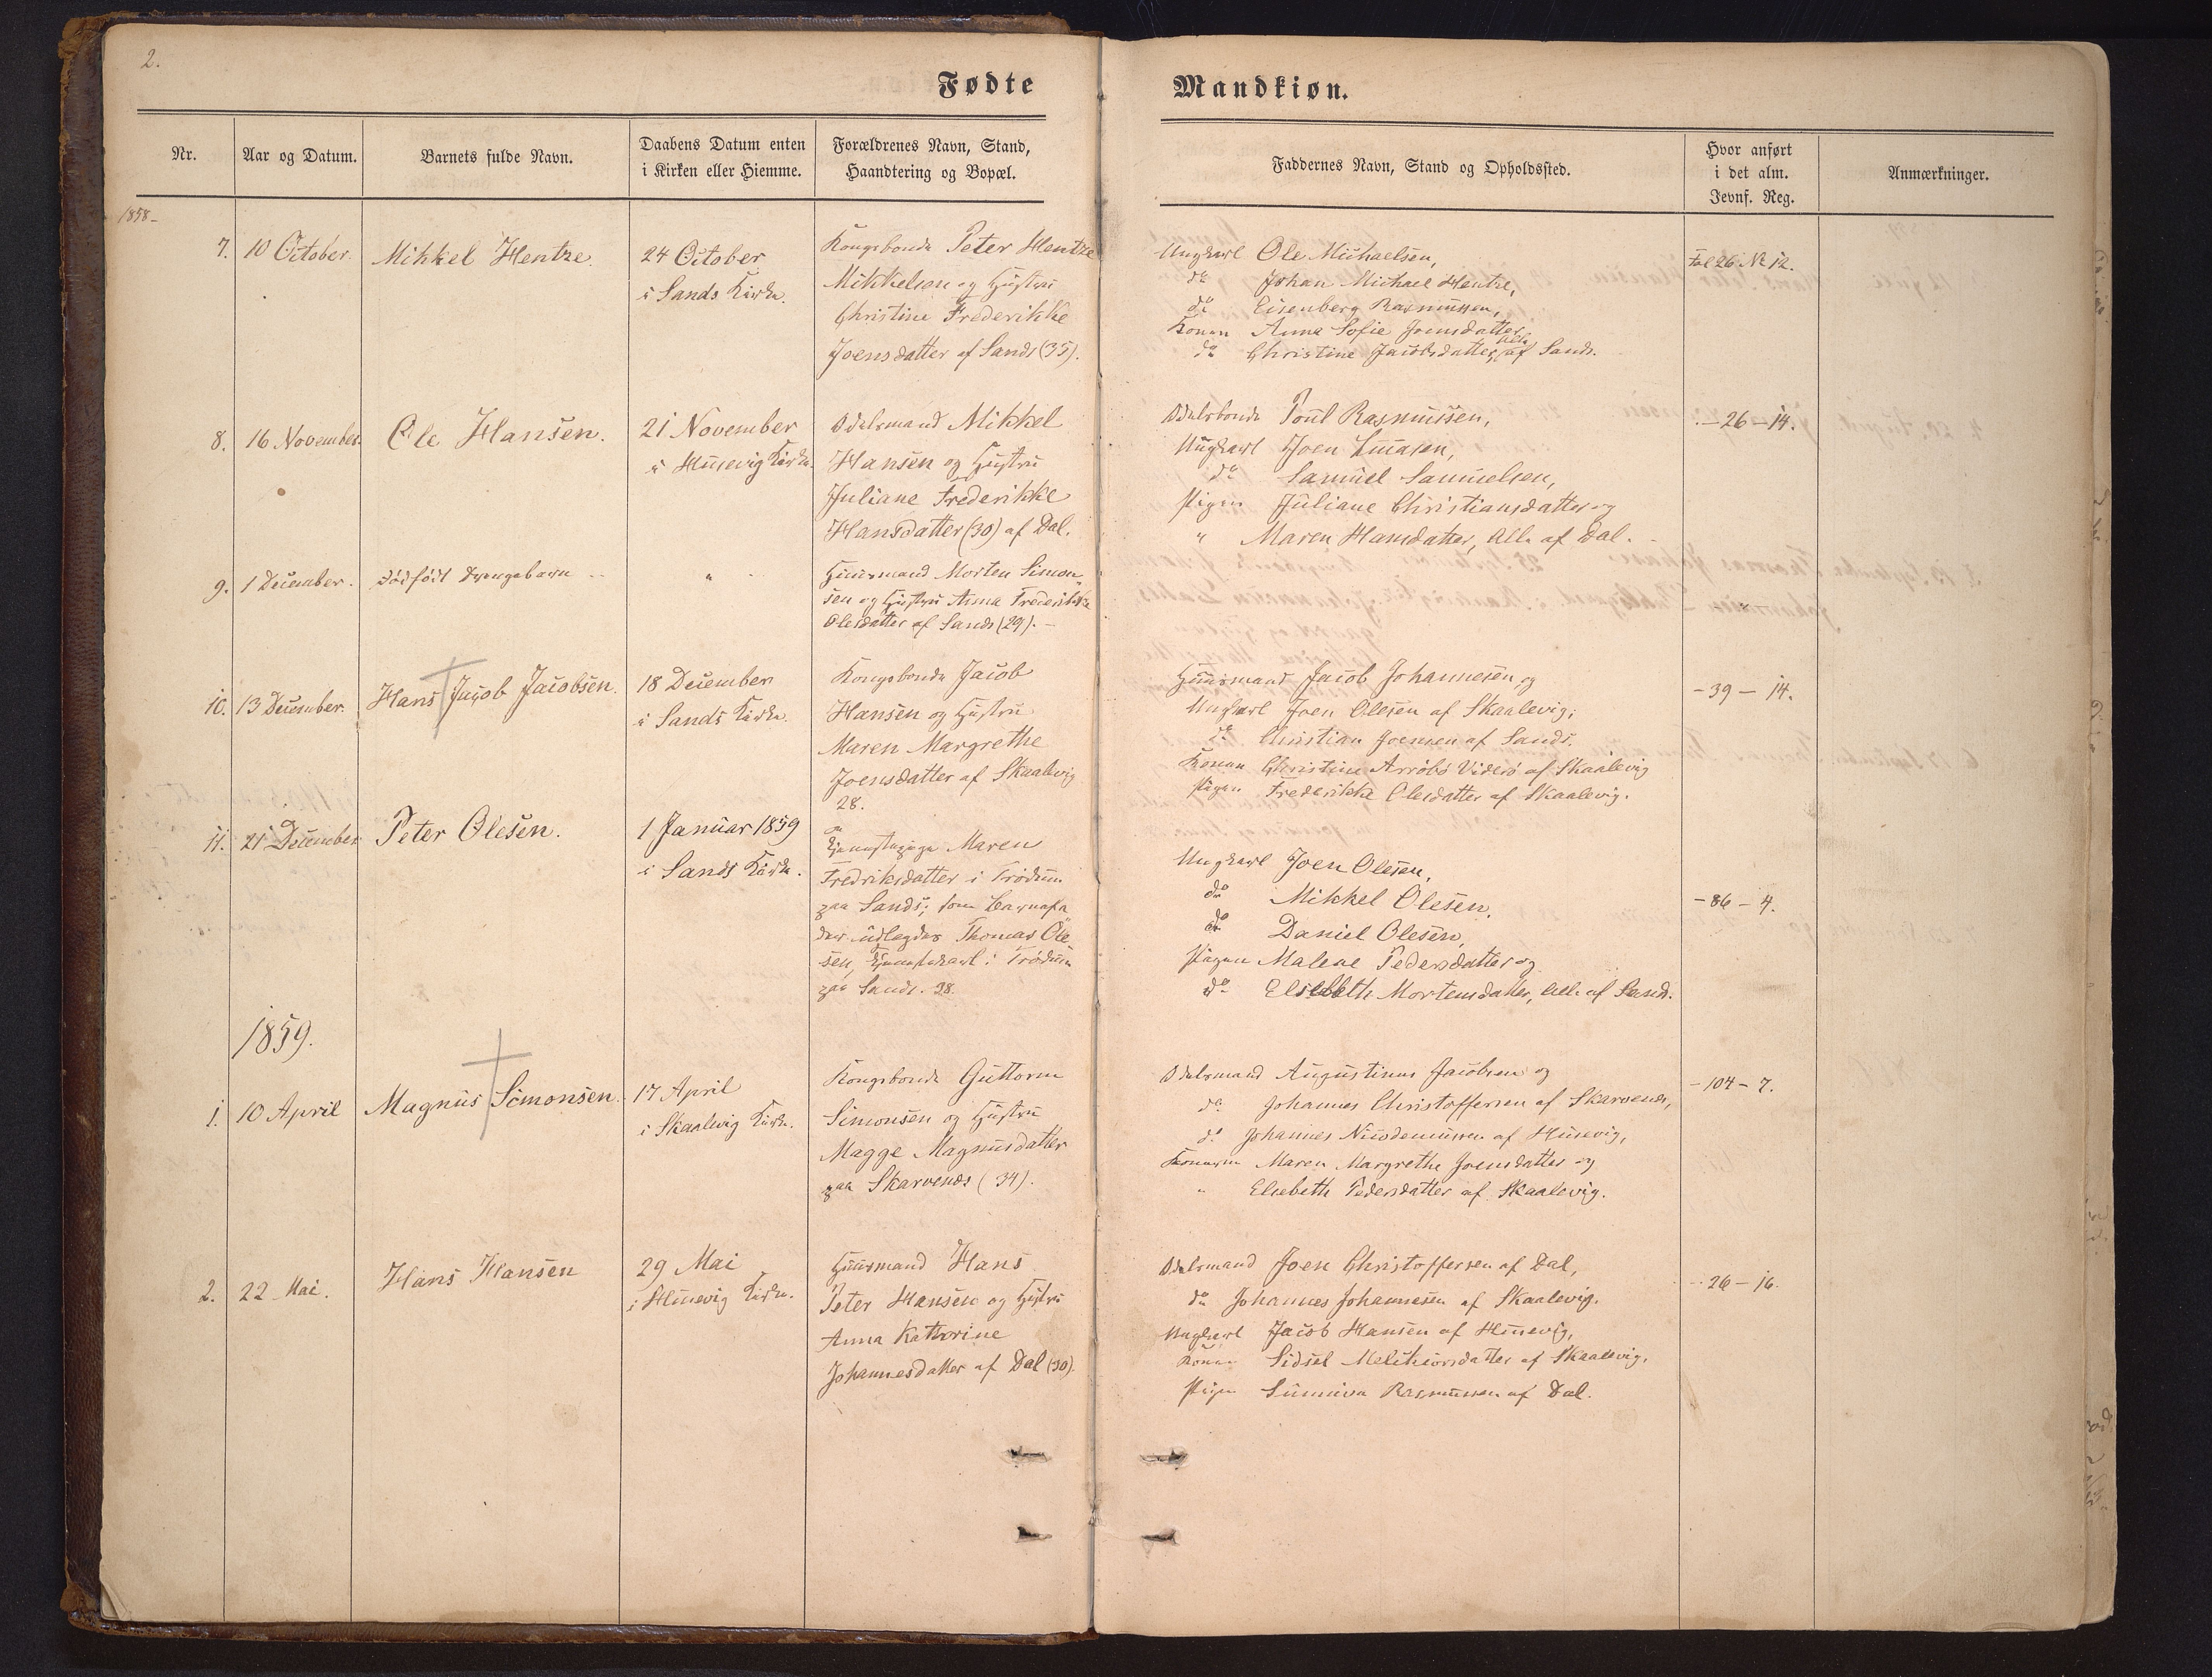 2.
Fødte
Mandkiøn.
Nr.
Aar og Datum.
Barnets fulde Navn.
Daabens Datum enten
i Kirken eller Hiemme.
Forældrenes Navn, Stand,
Haandtering og Bopæl.
Faddernes Navn, Stand og Opholdssted.
Hvor anført
i det alm.
Jevnf. Reg.
Anmærkninger.
1858-
7.
10 October.
Mikkel Hentze
24 October
i Sands Kirke.
Kongsbonde Peter Hentze
Mikkelsen og Hustru
Christine Frederikke
Joensdatter af Sand (35).
Ungkarl Ole Michaelsen,
do Johan Michael Hentze,
do Eisenberg Rasmussen,
Konen Anna Sofie Joensdatter
do Christine Jacobsdatter, alle af Sand.
Fol 26 No 12.
8.
16 November
Ole Hansen.
21 November
i Husevig Kirke.
Odelsmand Mikkel
Hansen og Hustru
Juliane Frederikke
Hansdatter (30) af Dal.
Odelsbonde Poul Rasmussen,
Ungkarl Joen Lucasen,
do Samuel Samuelsen,
Pigen Juliane Christiansdatter og
" Maren Hansdatter, Alle af Dal.
- 26 - 14.
9.
1 December.
dødfødt Drengebarn
"
Huusmand Morten Simon-
sen og Hustru Anna Frederikke
Olesdatter af Sand (29). -
- " -
10.
13 December.
Hans Jacob Jacobsen.
18 December
i Sands Kirke.
Kongsbonde Jacob
Hansen og Hustru
Maren Margrethe
Joensdatter af Skaalevig
28.
Huusmand Jacob Johannesen og
Ungkarl Joen Olesen af Skaalevig;
do Christian Joensen af Sand.
Konen Christine Arrøbo Viderø af Skaalevig
Pigen Frederikke Olesdatter af Skaalevig.
- 39 - 14.
11.
21 December
Peter Olesen.
1 Januar 1859
i Sands Kirke.
Tjenestepige Maren
Fredriksdatter i Trødum
paa Sand; som Barnefa-
der udlagdes Thomas Ole-
sen, Tjenestekarl i Trødum
paa Sand. 28.
Ungkarl Joen Olesen,
do Mikkel Olesen,
do Daniel Olesen,
Pigen Malene Pedersdatter og
do Elsebeth Mortensdatter, Alle af Sand.
- 86 - 4.
1859.
1.
10 April
Magnus Simonsen.
17 April
i Skaalevig Kirke.
Kongsbonde Guttorm
Simonsen og Hustru
Magge Magnusdatter
paa Skarvenæs (34).
Odelsmand Augustinus Jacobsen og
do Johannes Christoffersen af Skarvenæs,
do Johannes Nicodemussen af Husevig,
Konerne Maren Margrethe Joensdatter og
" Elsebeth Pedersdatter af Skaalevig.
- 104 - 7.
2.
22 Mai.
Hans Hansen
29 Mai
i Husevig Kirke.
Huusmand Hans
Peter Hansen og Hustru
Anna Kathrine
Johannesdatter af Dal (30).
Odelsmand Joen Christoffersen af Dal,
do Johannes Johannesen af Skaalevig.
Ungkarl Jacob Hansen af Husevig,
Konen Sidsel Melchiorsdatter af Skaalevig,
Pigen Sunniva Rasmussen af Dal.
- 26 - 16.